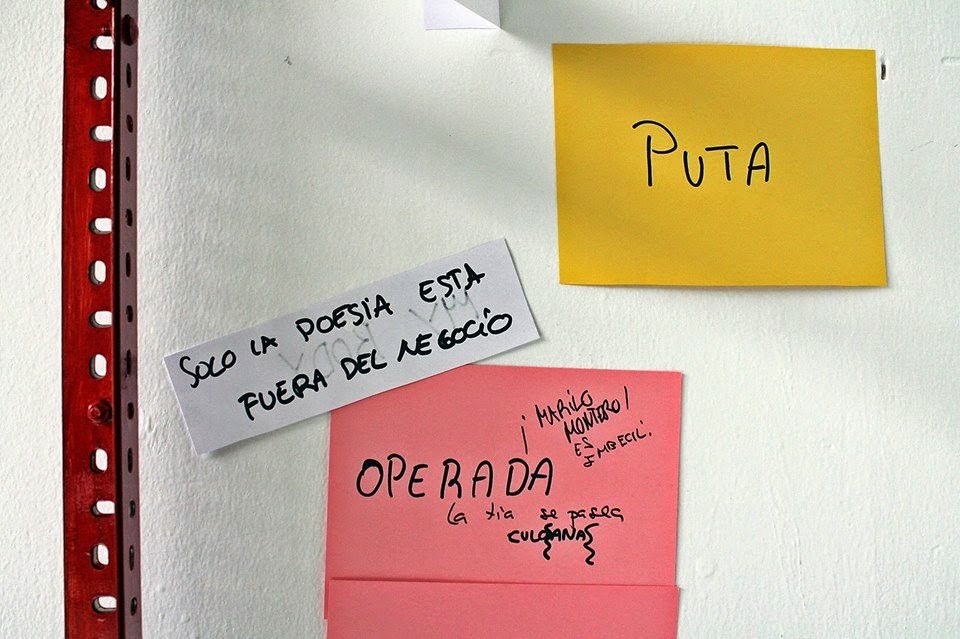 PUTA
SOLO LA POESIA ESTA
FUERA DEL NEGOCIO
¡ MARILO
MONTERO!
ES
IMBECIL.
OPERADA
la tia se pasea